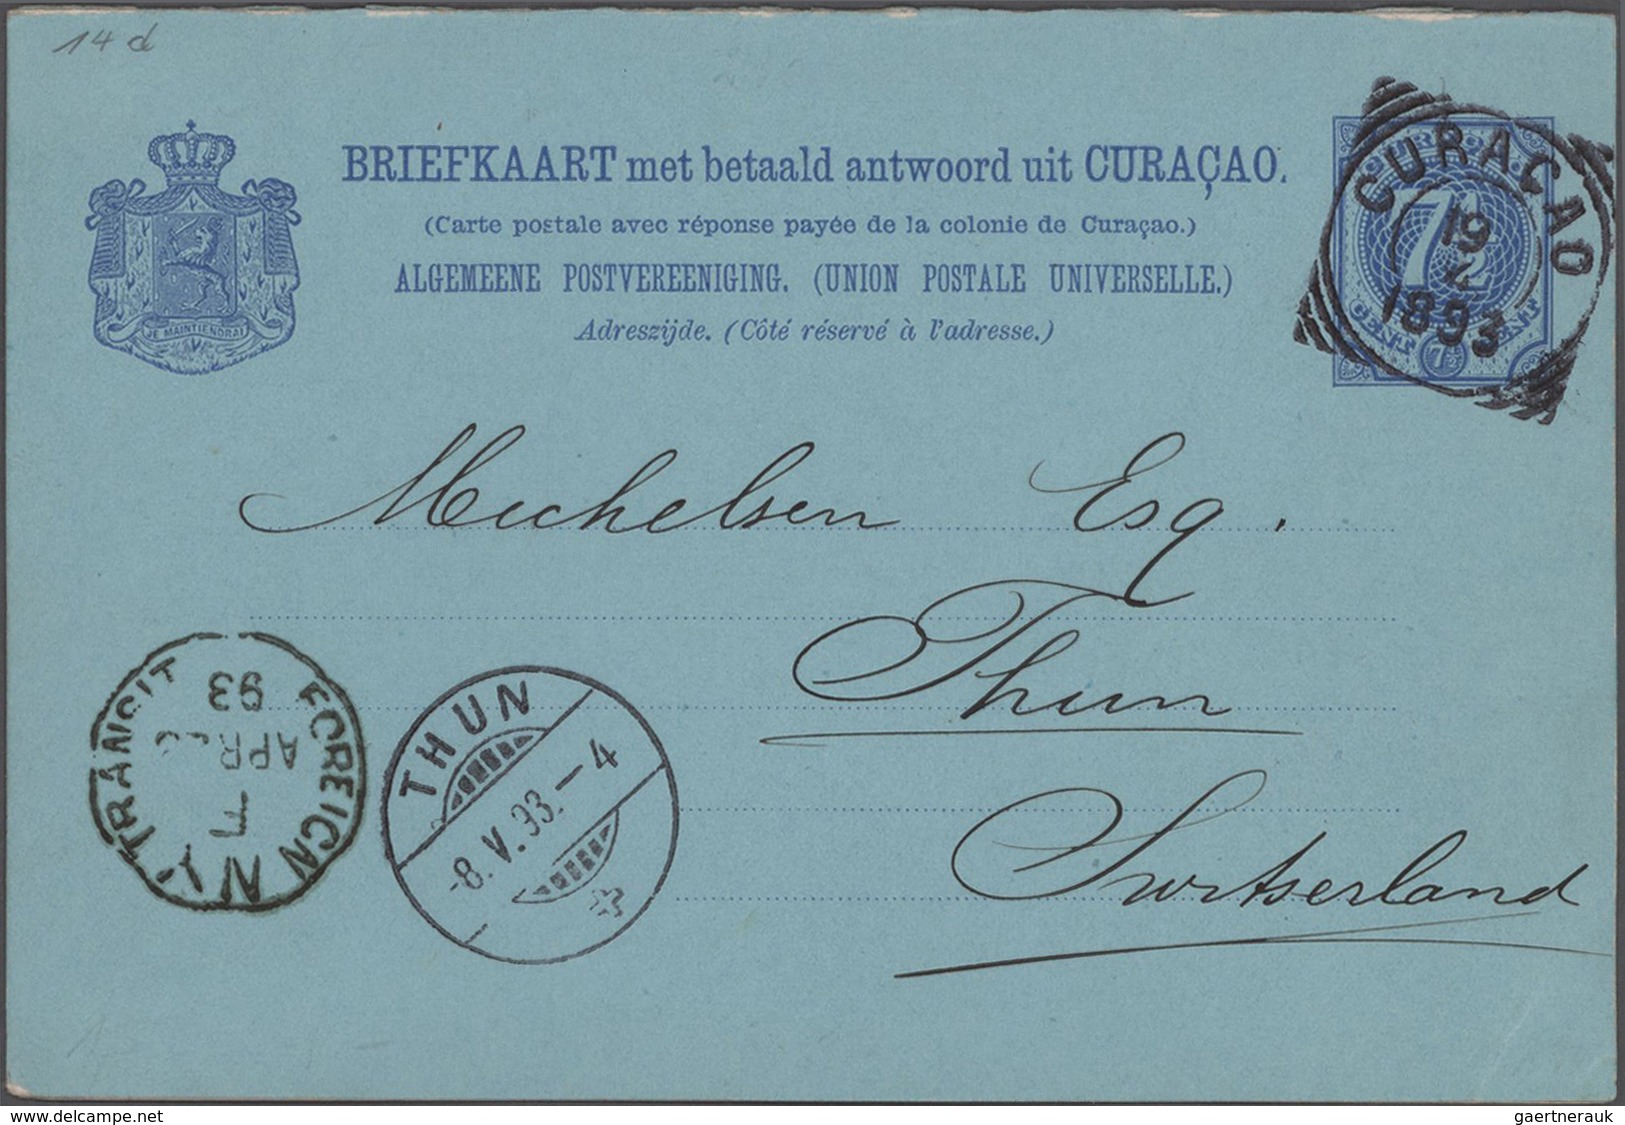 14 d
BRIEFKAART met betaald antwoord uit CURAÇAO.
(Carte postale avec réponse payée de la colonie de Curaçao.)
ALGEMEENE POSTVEREENIGING. (UNION POSTALE UNIVERSELLE.)
Adreszijde. (Côté réservé à l'adresse.)
JE MAINTIENDRAI
7½
CENT 7½ CENT
CURAÇAO
19
1893
Michelsen Esq.
Thun
Switserland
N.Y. FOREIGN TRANSIT
APR
93
THUN
-8.V.93.-4
www.delcampe.net
gaertnerauk